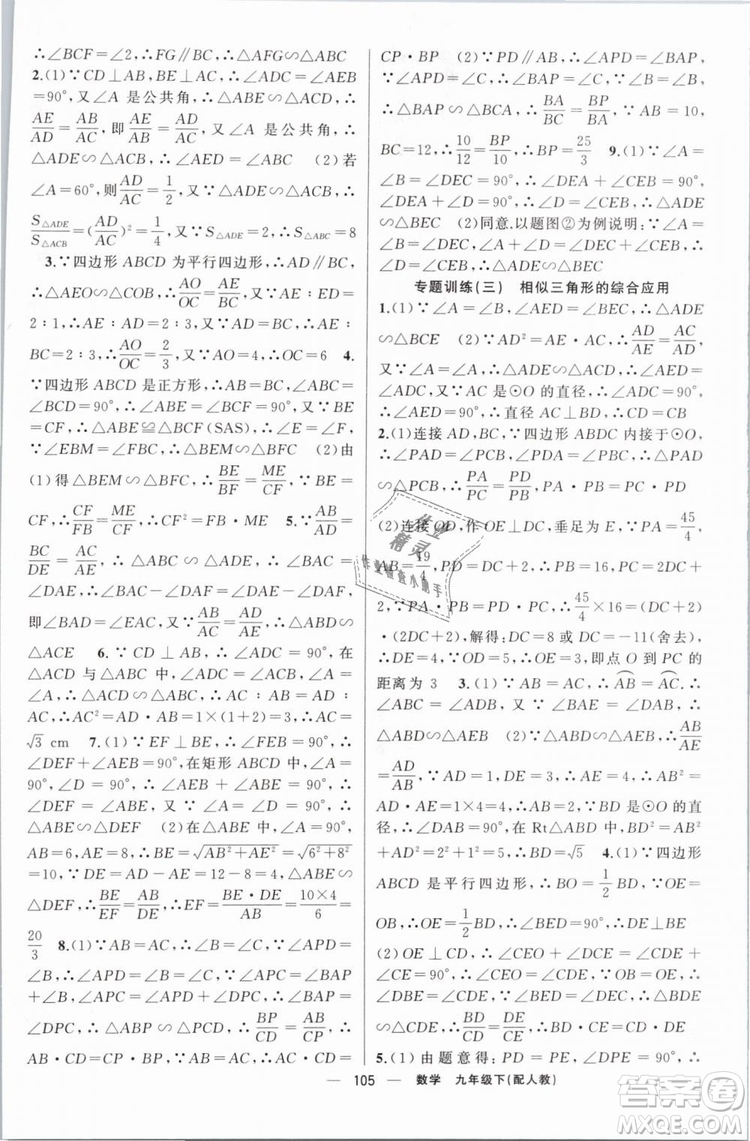 ∴∠BCF=∠2,∴FG∥BC,∴△AFG∽△ABC
2.(1)∵CD⊥AB,BE⊥AC,∴∠ADC=∠AEB
=90°,又∵∠A 是公共角,∴△ABE∽△ACD,∴
AE/AD=AB/AC,即AE/AB=AD/AC,又∵∠A 是公共角,∴
△ADE∽△ACB,∴∠AED=∠ABC (2)若
∠A=60°,则AD/AC=1/2,又∵△ADE∽△ACB,∴
S△ADE/S△ACB=(AD/AC)²=1/4,又∵S△ADE=2,∴S△ACB=8
3.∵四边形 ABCD 为平行四边形,∴AD∥BC,∴
∠EAO=∠BCO,∠AEO=∠CBO,∴AO/OC=AE/BC,∵AE∶ED=
2∶1,∴AE∶AD=2∶3,∵AD=BC,∴AE∶
BC=2∶3,∴AO/OC=2/3,∵AO=4,∴OC=6 4.
∵四边形 ABCD 是正方形,∴AB=BC,∠ABC=
∠BCD=90°,∴∠ABE=∠BCF=90°,又∵BE
=CF,∴△ABE≌△BCF(SAS),∴∠E=∠F,
∵∠EBM=∠FBC,∴△EBM∽△FBC (2)由
(1)得△EBM∽△FBC,∴BE/BF=ME/CF,∵BE=
CF,∴CF/FB=ME/CF,∴CF²=FB·ME 5.∵AB/AD=
BC/DE=AC/AE,∴△ABC∽△ADE,∴∠BAC=
∠DAE,∴∠BAC-∠DAC=∠DAE-∠DAC,
即∠BAD=∠CAE,又∵AB/AD=AC/AE,∴△ABD
∽△ACE 6.∵CD⊥AB,∴∠ADC=90°,在△
ACD 与△ABC 中,∵∠ADC=∠ACB=90°,∠A
=∠A,∴△ACD∽△ABC,∴AC∶AB=AD∶
AC,∴AC²=AD·AB=1×(1+2)=3,∴AC=
√3 cm 7.(1)∵EF⊥BE,∴∠FEB=90°,∴
∠DEF+∠AEB=90°,∵在矩形 ABCD 中,∠A=
90°,∠D=90°,∴∠ABE+∠AEB=90°,∴∠DEF
=∠ABE,又∵∠A=∠D=90°,∴
△ABE∽△DEF (2)在△ABE 中,∠A=90°,AB=
6,AE=8,∴BE=√(AB²+AE²)=√(6²+8²)
=10,又∵DE=AD-AE=12-8=4,△ABE∽
△DEF,∴BE/EF=AB/DE,∴EF=BE·DE/AB=10×4/6=
20/3 8.(1)∵AB=AC,∴∠B=∠C,∵∠APD=
∠B,∴∠APD=∠B=∠C,∵∠APC=∠BAP
+∠B,∠APC=∠APD+∠DPC,∴∠BAP=
∠DPC,∴△ABP∽△PCD,∴BP/CD=AB/CP,∴
AB·CD=CP·BP,∵AB=AC,∴AC·CD=
CP·BP (2)∵PD∥AB,∴∠APD=∠BAP,
∵∠APD=∠C,∴∠BAP=∠C,∵∠B=∠B,
∴△ABP∽△CBA,∴BA/BC=BP/BA,∵AB=10,
BC=12,∴10/12=BP/10,∴BP=25/3 9.(1)∵∠A=
∠B=∠DEC=90°,∴∠DEA+∠CEB=90°,
∵∠DEA+∠D=90°,∴∠D=∠CEB,∴△ADE
∽△BEC (2)同意.以题图②为例说明:∵∠A=
∠B=∠DEC,∠DEB=∠A+∠D=∠DEC+
∠CEB,∴∠D=∠CEB,∵∠A=∠B,∴△ADE
∽△BEC
专题训练(三) 相似三角形的综合应用
∽△BCE (2)∵AD²=AE·AC,∴AE/AD=AD/AC,
又∵∠A=∠A,∴△ADE∽△ACD,∴∠AED=
∠ADC,又∵AC是⊙O的直径,∴∠ADC=90°,
∴∠AED=90°,∴直径AC⊥CD,∴CD=CB
2.(1)连接 AD,BC,∵四边形 ABDC 内接于⊙O,
∴∠PAD=∠PCB,∵∠P=∠P,∴△PAD∽
△PCB,∴PA/PC=PD/PB,∴PA·PB=PD·PC
(2)连接 OD,作 OE⊥DC,垂足为 E,∵PA=45/4,
AB=19/4
2,∵PA·PB=PD·PC,∴45/4×16=(DC+2)
·(2DC+2),解得:DC=8 或 DC=-11(舍去),
∴DE=4,∵OD=5,∴OE=3,即点 O 到 PC 的
距离为 3 3.(1)∵AB=AC,∴AB=AC,∴
∠ABC=∠ADB,又∠BAE=∠DAB,∴
△ABE∽△ADB,∴AB/AD=AE/AB,
∴AB²=AD·AE
∵AD=AE+DE=4,AE=1,∴AB²=
AD·AE=1×4=4,∴AB=2,∵BD是⊙O的直
径,∴∠DAB=90°,在Rt△ABD中,BD²=
AB²+AD²=2²+4²=20,∴BD=√5 4.(1)∵四边形
ABCD 是平行四边形,∴BO=1/2BD,∵OE=
1/2BD,∴
OB,∴∠BED=90°,∴DE⊥BE
(2)∵OE⊥CD,∴∠CEO+∠DCE=∠CDE+
∠DCE=90°,∴∠CEO=∠CDE,∵OB=OE,
∴∠DBE=∠CEO,∴∠DBE=∠CDE,
∵∠BED=∠BED=90°,∴△BDE∽△DCE,
∴BD/CD=DE/CE,∴BD·CE=CD·DE
5.(1)由题意得:∠BAD=∠BCE,∵∠ABD=
105 数学 九年级下(配人教)
作业精灵
作业检查小助手
答案圈
MXQE.COM